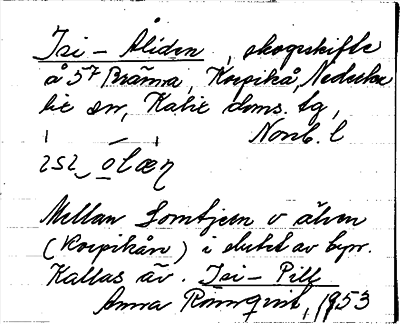 Isi - Åliden, skogsskifte
å 57 Bränna, Korpikå, Nederka
lix sn, Kalix doms. tg,
Norrb. l
ɪsɪ_olæn
Mellan Lomtjern o älven
(Korpikån) i slutet av byn.
Kallas äv. Isi - Pill
Anna Rönnqvist, 1953